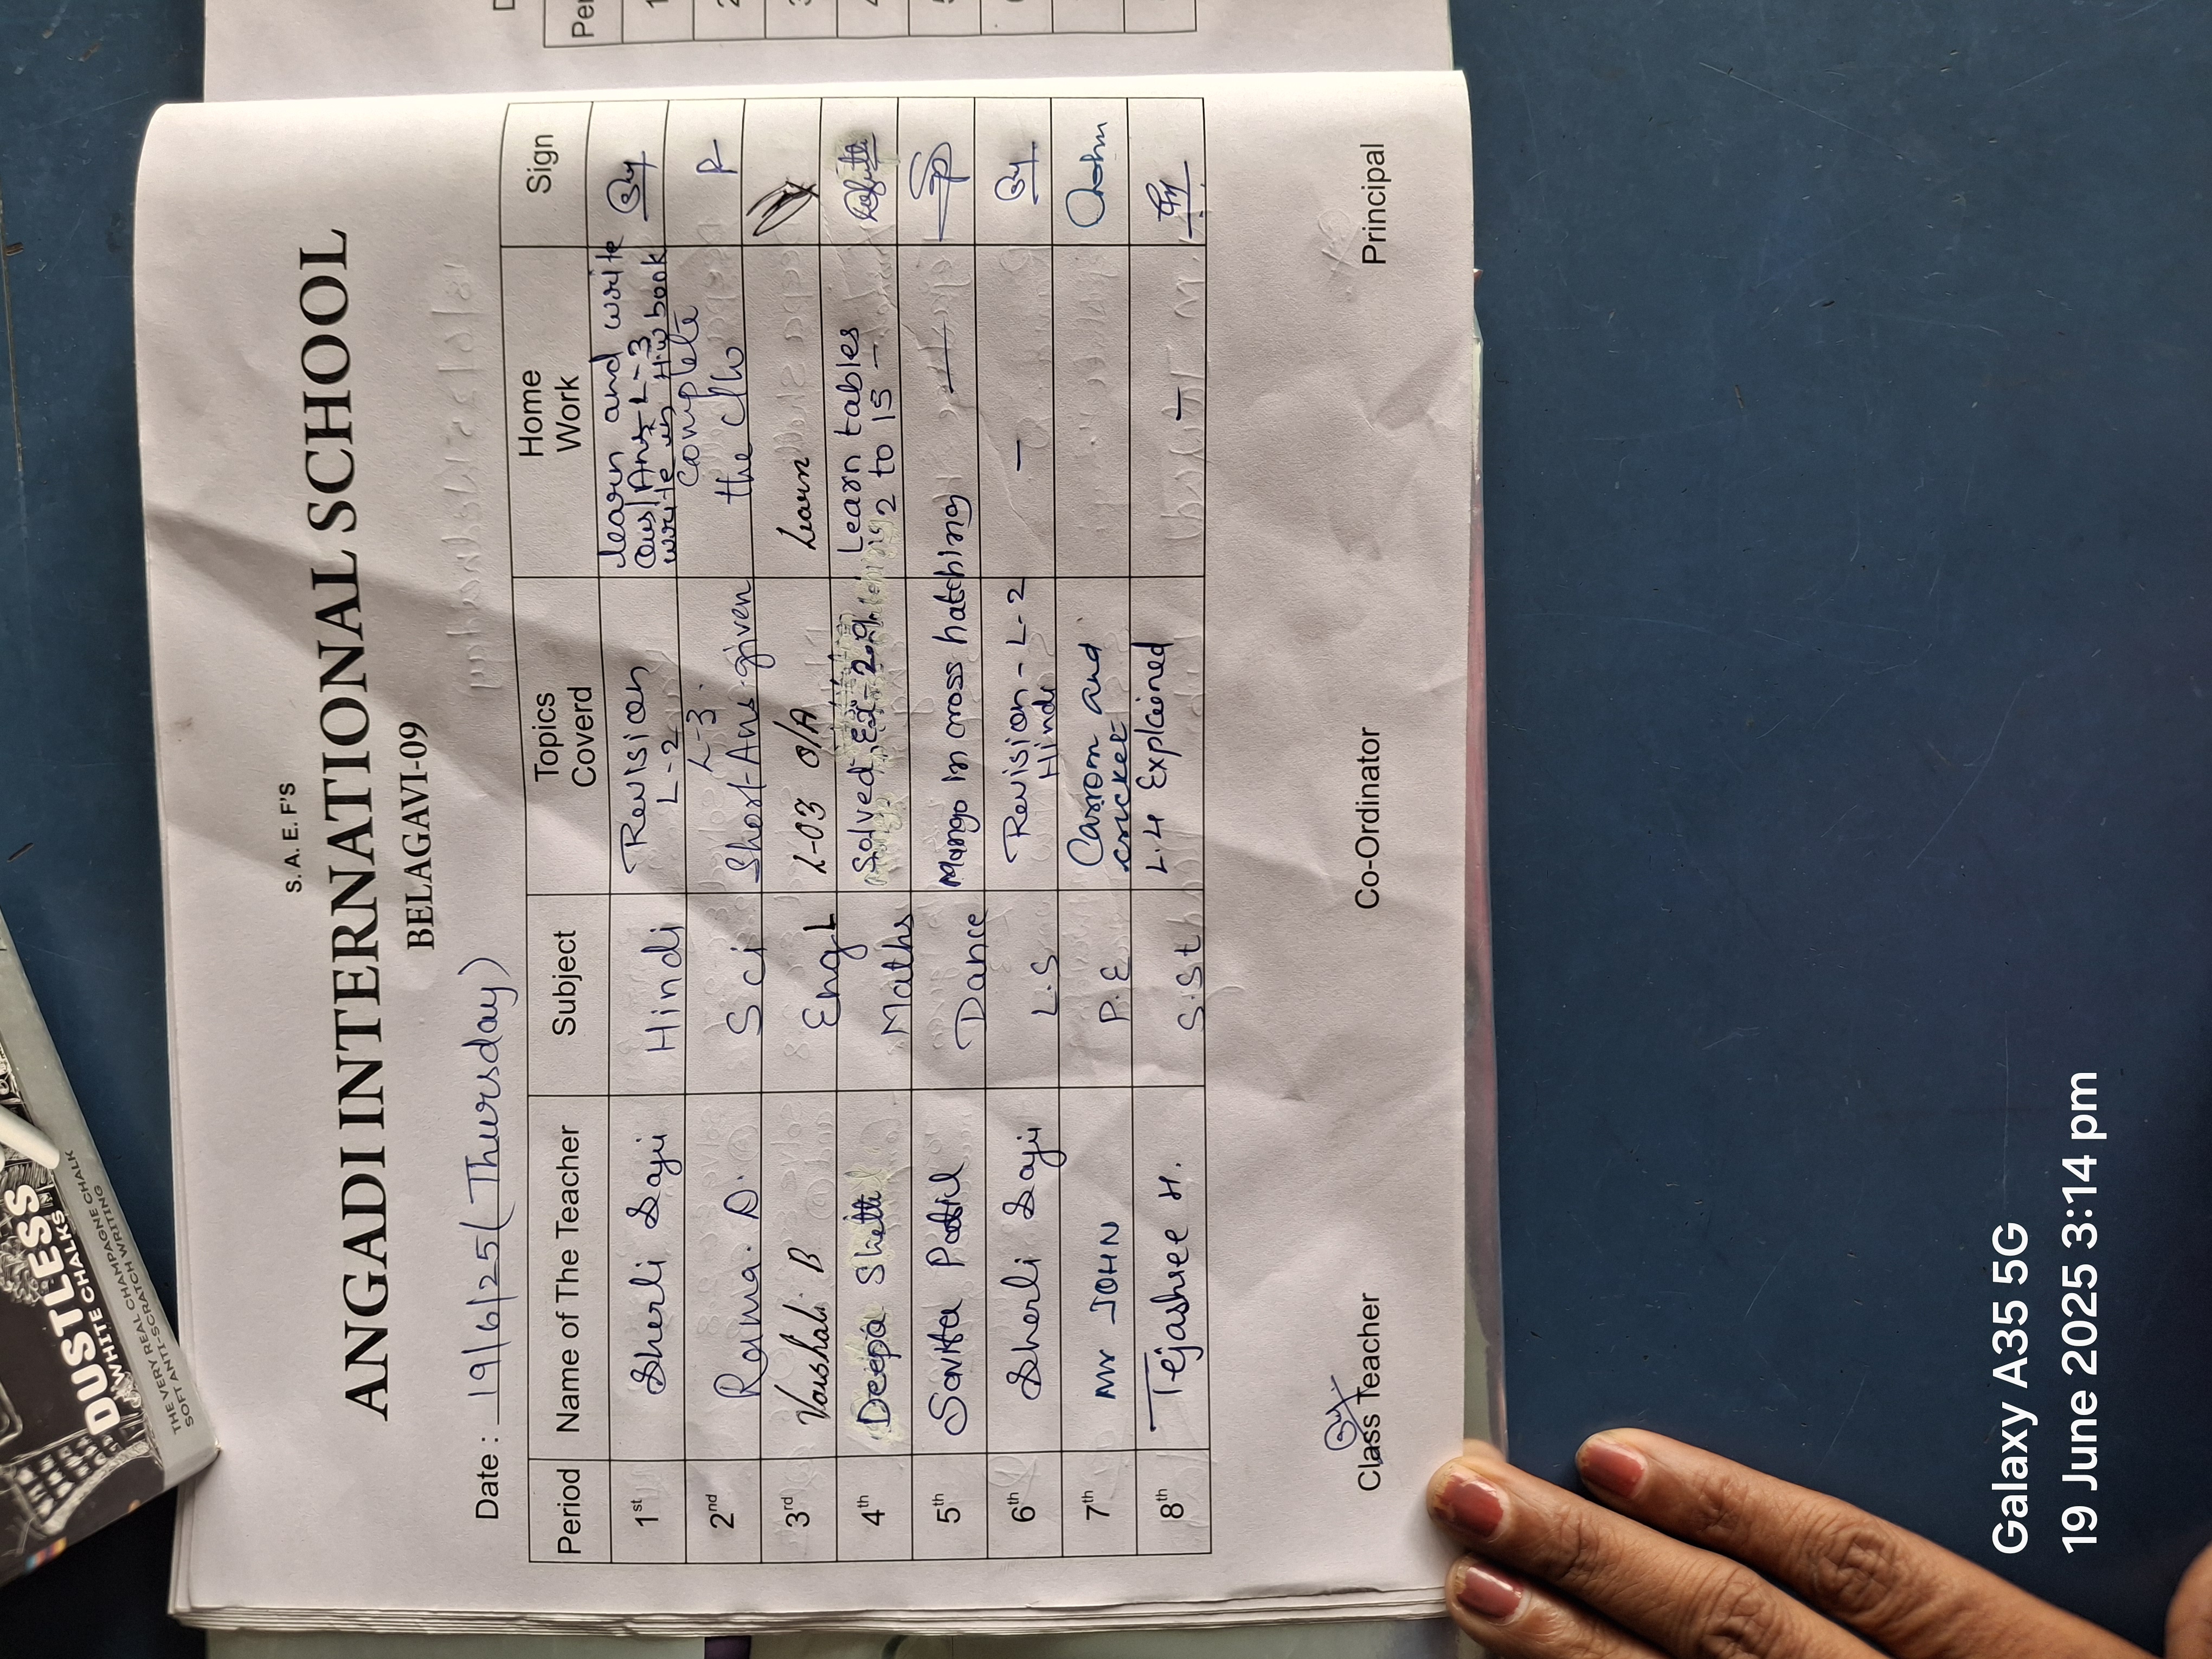 S. A. E. F'S
ANGADI INTERNATIONAL SCHOOL
BELAGAVI-09
Date : 19/6/25 (Thursday)
Period Name of The Teacher Subject Topics Coverd Home Work Sign
1st Sherli Saji Hindi Revision L-2 learn and write Ans L-3 write in H.W book
2nd Rama. D. Sci L-3. Short Ans given Complete the c/w R
3rd Varshali B Engl L-03 Learn
4th Deepa Shetti Maths Solved Ex-2.9 Learn tables 2 to 15 -
5th Savita Patil Dance Mango in cross hatching — SP
6th Sherli Saji L.S Revision - L-2 Hindi -
7th Mr JOHN P.E Carrom and cricket John
8th Tejashree H. S.St L.4 Explained -
Class Teacher Co-Ordinator Principal
DUSTLESS
WHITE CHALKS
THE VERY REAL CHAMPAGNE CHALK
SOFT ANTI-SCRATCH WRITING
Galaxy A35 5G
19 June 2025 3:14 pm